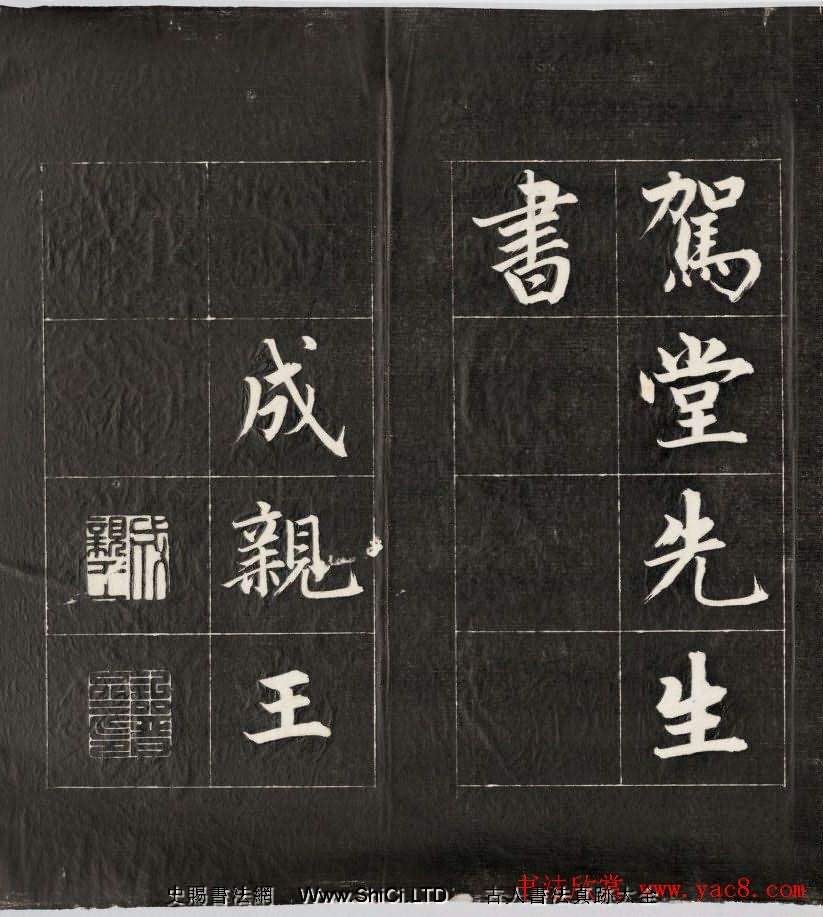 駕堂先生
書
成親王
成親王
史賜書法網 Www.ShiCi.LTD 古人書法真跡大全
书法欣赏 www.yac8.com